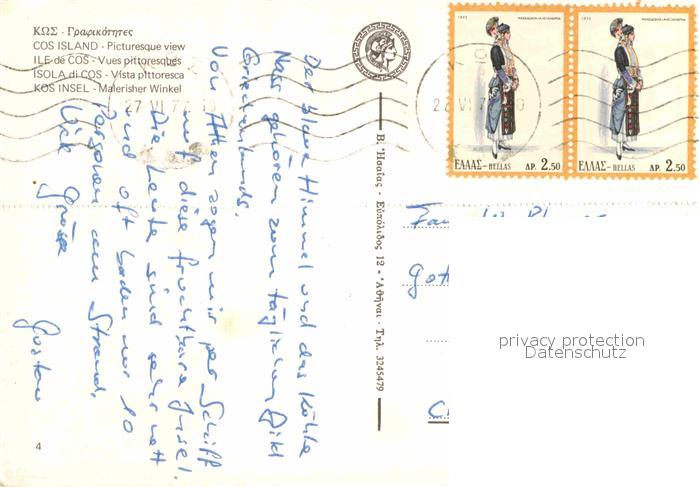 ΚΩΣ - Γραφικότητες
COS ISLAND - Picturesque view
ILE de COS - Vues pittoresques
ISOLA di COS - Vista pittoresca
KOS INSEL - Malerisher Winkel
27 VI 7
Der blaue Himmel und das kühle
Nass gehören zum täglichen Bild
Griechenlands.
Von Athen zogen wir per Schiff
auf diese fruchtbare Insel.
Die Leute sind sehr nett
und oft baden nur 10
Personen am Strand.
Grüsse
Gustav
4
Β. Ἡσαΐας - Εὐπόλιδος 12 - Ἀθῆναι - Τηλ. 3245479
1972
ΕΛΛΑΣ-HELLAS ΔΡ. 2.50
1972
ΕΛΛΑΣ-HELLAS ΔΡ. 2.50
VI 7
privacy protection
Datenschutz